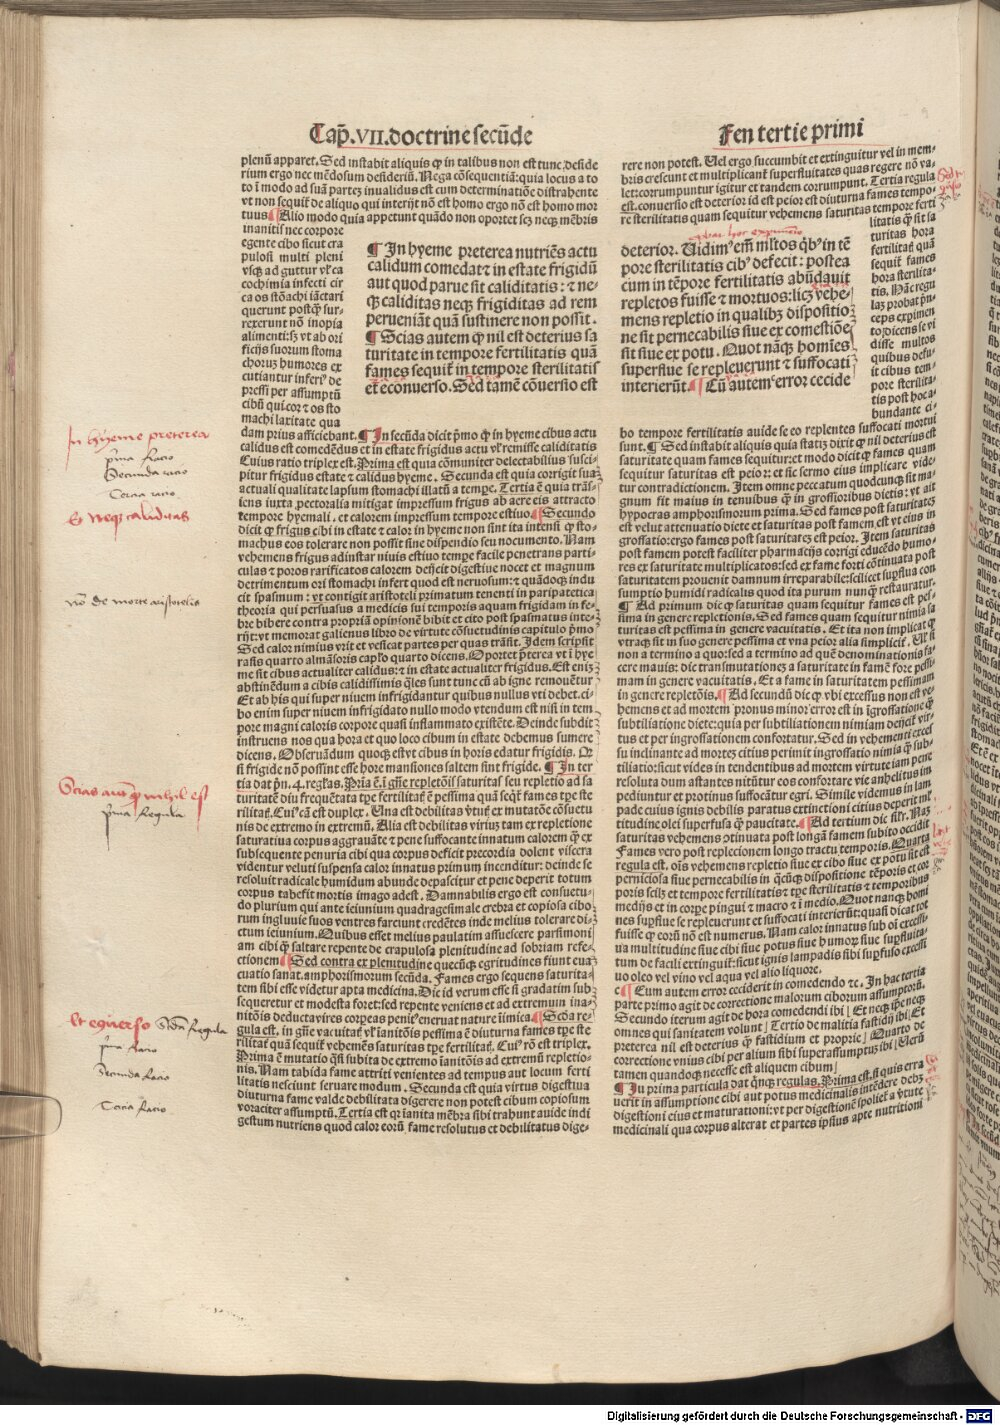 Cap̄.VII.doctrine secūde
Fen tertie primi
plenū apparet. Sed instabit aliquis ꝙ in talibus non est tunc deside
rium ergo nec mēdosum desideriū. Nega cōsequentiā: quia locus a to
to ī modo ad suā partez inualidus est cum determinatiōe distrahente
vt non sequit̄ de aliquo qui interijt nō est homo ergo nō est homo mor
tuus ¶Alio modo quia appetunt quādo non oportet sez necꝫ mēbris
inanitis nec corpore
egente cibo sicut cra
pulosi multi pleni
vsqꝫ ad guttur vl̓ ca
cochimia infecti cir
ca os stōachi iactari
querunt postꝙ̄ sur
rexerunt nō inopia
alimenti: sꝫ vt ab ori
ficijs suorum stoma
choruꝫ humores ex
cutiantur inferi⁹ de
pressi per assumptū
cibū qui cor ⁊ os sto
machi laxitate qua
dam prius afficiebant.
¶ In hyeme preterea nutriēs actu
calidum comedat ⁊ in estate frigidū
aut quod parue sit caliditatis: ⁊ ne-
qꝫ caliditas neqꝫ frigiditas ad rem
perueniāt quā sustinere non possit.
¶ Scias autem ꝙ nil est deterius sa
turitate in tempore fertilitatis quā
fames sequit̄ in tempore sterilitatis
et econuerso. Sed tamē cōuersio est
¶In secūda dicit p̄mo ꝙ in hyeme cibus actu
calidus est comedēdus et in estate frigidus actu vl̓ remisse caliditatis
Cuius ratio triplex est. Prima est quia cōmuniter delectabilius susci-
pitur frigidus estate ⁊ calidus hyeme. Secunda est quia corrigit suꝫ
actuali qualitate lapsum stomachi illatū a tempe. Tertia ē quia trās-
iens iuxta pectoralia mitigat impressum frigus ab aere eis attracto
tempore hyemali. et calorem impressum tempore estiuo ¶Secundo
dicit ꝙ frigus cibi in estate ⁊ calor in hyeme non sint ita intensi ꝙ sto-
machus eos tolerare non possit sine dispendio seu nocumento. Nam
vehemens frigus adinstar niuis estiuo tempe facile penetrans parti-
culas ⁊ poros rarificatos calorem deijcit digestiue nocet et magnum
detrimentum ori stomachi infert quod est neruosum: ⁊ quādoqꝫ indu
cit spasmum: vt contigit aristoteli primatum tenenti in paripatetica
theoria qui persuasus a medicis sui temporis aquam frigidam in fe-
bre bibere contra propriā opinionē bibit et cito post spasmatus inte-
rijt: vt memorat galienus libro de virtute cōsuetudinis capitulo p̄mo
Sed calor nimius vrit et vesicat partes per quas trāsit. Idem scripsit
rasis quarto almāsoris capl̓o quarto dicens. Oportet p̄terea vt ī hye
me sit cibus actualiter calidus: ⁊ in estate actualiter frigidus. Est enim
abstinēdum a cibis calidissimis q̄les sunt tunc cū ab igne remouētur
Et ab his qui super niuem infrigidantur quibus nullus vti debet. ci-
bo enim super niuem infrigidato nullo modo vtendum est nisi in tem
pore magni caloris corpore quasi inflammato existēte. Deinde subdit
instruens nos qua hora et quo loco cibum in estate debemus sumere
dicens. Obseruādum quoqꝫ est vt cibus in horis edatur frigidis. Qꝫ
si frigide nō possint esse hore mansiones saltem sint frigide. ¶In ter
tia dat p̄n. 4. regl̓as. Prīa ē. ī gn̄e repletōis saturitas seu repletio ad sa
turitatē diu frequētata tp̄e fertilitat̄ ē pessima quā seqt̄ fames tp̄e ste
rilitat̄. Cui⁹ cā est duplex. Una est debilitas vtut̄ ex mutatōe cōsuetu
nis de extremo in extremū. Alia est debilitas viriuꝫ tam ex repletione
saturatiua corpus aggrauāte ⁊ pene suffocante innatum calorem ꝙ ex
subsequente penuria cibi qua corpus deficit precordia dolent viscera
videntur veluti suspensa calor innatus primum inceditur: deinde se
resoluit radicale humidum abunde depascitur et pene deperit totum
corpus tabefit mortis imago adest. Damnabilis ergo est consuetu-
do plurium qui ante ieiunium quadragesimale crebra et copiosa cibo-
rum ingluuie suos ventres farciunt credētes inde melius tolerare di-
ctum ieiunium. Quibus esset melius paulatim assuescere parsimoni
am cibi ꝙ̄ saltare repente de crapulosa plenitudine ad sobriam refe-
ctionem ¶Sed contra ex plenitudine quecūqꝫ egritudines fiunt eua
cuatio sanat. amphorismorum secūda. Fames ergo sequens saturita-
tem sibi esse videtur apta medicina. Dic id verum esse si gradatim sub
sequeretur et modesta foret: sed repente veniens et ad extremum ina-
nitōis deducta vires corpeas peni⁹ eneruat nature īimica. ¶Scōa re-
gula est. in gn̄e vacuitat̄ vl̓ īanitōis pessima ē diuturna fames tp̄e ste
rilitat̄ quā sequit̄ vehemēs saturitas tp̄e fertilitat̄. Cui⁹ rō est triplex.
Prima ē mutatio q̄si subita de extremo īanitōis ad extremū repletio-
nis. Nam tabida fame attriti venientes ad tempus aut locum ferti
litatis nesciunt seruare modum. Secunda est quia virtus digestiua
diuturna fame valde debilitata digerere non potest cibum copiosum
voraciter assumptū. Tertia est qꝛ īanita mēbra sibi trahunt auide indi
gestum nutriens quod calor eorū fame resolutus et debilitatus dige-
rere non potest. Uel ergo succumbit et extinguitur vel in mem-
bris crescunt et multiplicant̄ superfluitates quas regere nō va-
let: corrumpuntur igitur et tandem corrumpunt. Tertia regula
est. conuersio est deterior id est peior est diuturna fames tempo-
re sterilitatis quam sequitur vehemens saturitas tempore ferti
litatis ꝙ sit sa
turitas hora
fertilitat̄ quā
sequit̄ fames
hora sterilita-
tis. Hāc regu
laꝫ probat p̄n-
ceps exp̄imen
to: dicens se vi
disse multos
quibus defu-
it cibus tem-
pore sterilita-
tis post hoc a-
bundante ci-
deterior. Uidim⁹ em̄ ml̓tos qb⁹ in tē
pore sterilitatis cib⁹ defecit: postea
cum in tēpore fertilitatis abūdauit
repletos fuisse ⁊ mortuos: licꝫ vehe-
mens repletio in qualibꝫ dispositio-
ne sit pernecabilis siue ex comestiōe
sit siue ex potu. Quot nāqꝫ homīes
superflue se repleuerunt ⁊ suffocati
interierūt. ¶ Cū autem error cecide
bo tempore fertilitatis auide se eo replentes suffocati mortui
sunt. ¶ Sed instabit aliquis quia statiꝫ dixit ꝙ nil deterius est
saturitate quam fames sequitur: et modo dicit ꝙ fames quam
sequitur saturitas est peior: et sic sermo eius implicare vide-
tur contradictionem. Item omne peccatum quodcunqꝫ sit ma-
gnum fit maius in tenuibus ꝙ̄ in grossioribus dietis: vt ait
hypocras amphorismorum prima. Sed fames post saturitatez
est velut attenuatio diete et saturitas post famem est vt eius in
grossatio: ergo fames post saturitatez est peior. Item saturitas
post famem potest faciliter pharmacijs corrigi educēdo humo-
res ex saturitate multiplicatos: sed ex fame forti cōtinuata post
saturitatem prouenit damnum irreparabile: scilicet suꝑflua con
sumptio humidi radicalis quod ita purum nunꝙ̄ restauratur.
¶ Ad primum dic ꝙ saturitas quam sequitur fames est pes-
sima in genere repletionis. Sed fames quam sequitur nimia sa
turitas est pessima in genere vacuitatis. Et ita non implicat ꝙ
vtraqꝫ sit in suo genere pessima et vna peior alia simplicit̄. Ul̓ si
non a termino a quo: sed a termino ad quē denominationis fa-
cere mauis: dic transmutationez a saturitate in famē fore pessi-
mam in genere vacuitatis. Et a fame in saturitatem pessimam
in genere repletōis. ¶Ad secundū dic ꝙ vbi excessus non est ve-
hemens et ad mortem pronus minor error est in īgrossatione ꝙ̄
subtiliatione diete: quia per subtiliationem nimiam deijcit̄ vir-
tus et per ingrossationem confortatur. Sed in vehementi exces
su inclinante ad mortez citius perimit ingrossatio nimia ꝙ̄ sub-
tiliatio: sicut vides in tendentibus ad mortem virtute iam pene
resoluta dum astantes nitūtur eos confortare vie anhelitus im
pediuntur et protinus suffocātur egri. Simile videmus in lam
pade cuius ignis debilis paratus extinctioni citius deperit ml̓
titudine olei superfusa ꝙ̄ paucitate. ¶Ad tertium dic sil̓r. Naꝫ
saturitas vehemens ↄtinuata post longā famem subito occidit
Fames vero post replecionem longo tractu temporis. Quarta
regula est. oīs vehemens repletio siue ex cibo siue ex potu sit est
perniciosa siue pernecabilis in q̄cūqꝫ dispositione tēporis et cor
poris scilꝫ et tempore fertilitatis ⁊ tp̄e sterilitatis ⁊ temporibus
medijs et in corpe pingui ⁊ macro ⁊ ī medio. Quot nanqꝫ homi
nes suꝑflue se repleuerunt et suffocati interierūt: quasi dicat tot
fuisse ꝙ eorū nō est numerus. Nam calor innatus sub oī excessi-
ua multitudine siue cibi siue potus siue humoꝝ siue suꝑfluita-
tum de facili extinguit̄: sicut ignis lampadis sibi suꝑfuso excessi
uo oleo vel vino vel aqua vel alio liquore.
¶ Cum autem error ceciderit in comedendo ⁊c. In hac tertia
parte primo agit de correctione malorum ciborum assumptorū.
Secundo iterum agit de hora comedendi ibi ( Et necꝫ ip̄e necꝫ
omnes qui sanitatem volunt ) Tertio de malitia fastidij ibi ( Et
preterea nil est deterius ꝙ̄ fastidium et proprie ) Quarto de
correctione vnius cibi per alium sibi superassumptuꝫ ibi ( Uerū
tamen quandocqꝫ necesse est aliquem cibum )
¶In prima particula dat q̄nqꝫ regulas. Prima est. si quis erra
uerit in assumptione cibi aut potus medicinalis intēdere debꝫ
digestioni eius et maturationi: vt per digestionē ꝓliceat̄ a v̓tute
medicinali qua corpus alterat et partes ipsius apte nutritioni
In hyeme preterea
p̄ma Racio
Secunda racio
Tercia racio
Et neqꝫ caliditas
nō de morte aristotelis
Scias autē ꝙ nihil est
p̄ma Regula
et eq̄uerso Scd̄a Regula
p̄ma Racio
Secunda Racio
Tercia Racio
Digitalisierung gefördert durch die Deutsche Forschungsgemeinschaft - DFG